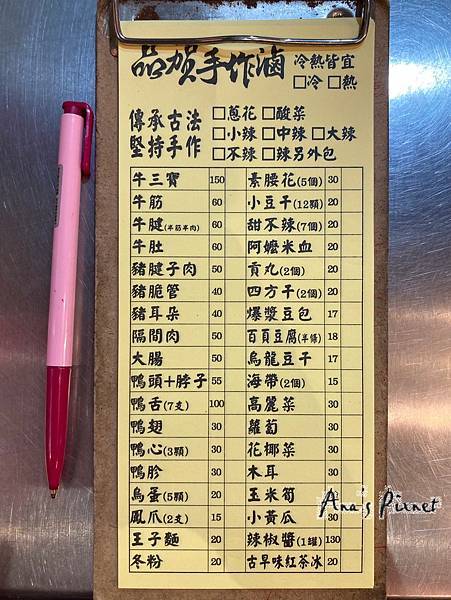 品頌手作滷 冷熱皆宜
□冷 □熱
傳承古法 □蔥花□酸菜
堅持手作 □小辣□中辣□大辣
□不辣□辣另外包
牛三寶 150 素腰花(5個) 30
牛筋 60 小豆干(12顆) 20
牛腱(半筋半肉) 60 甜不辣(7個) 20
牛肚 60 阿嬤米血 20
豬腱子肉 50 貢丸(2個) 20
豬脆管 40 四方干(2個) 20
豬耳朵 40 爆漿豆包 17
隔間肉 50 百頁豆腐(半條) 18
大腸 50 烏龍豆干 17
鴨頭+脖子 55 海帶(2個) 15
鴨舌(7支) 100 高麗菜 30
鴨翅 30 蘿蔔 30
鴨心(3顆) 30 花椰菜 30
鴨胗 30 木耳 30
鳥蛋(5顆) 20 玉米筍
鳳爪(2支) 15 小黃瓜
王子麵 20 辣椒醬(1罐) 130
冬粉 20 古早味紅茶冰 20
Ana's Pixnet